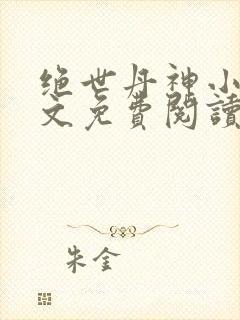 绝世丹神小
文免費閱讀
朱金